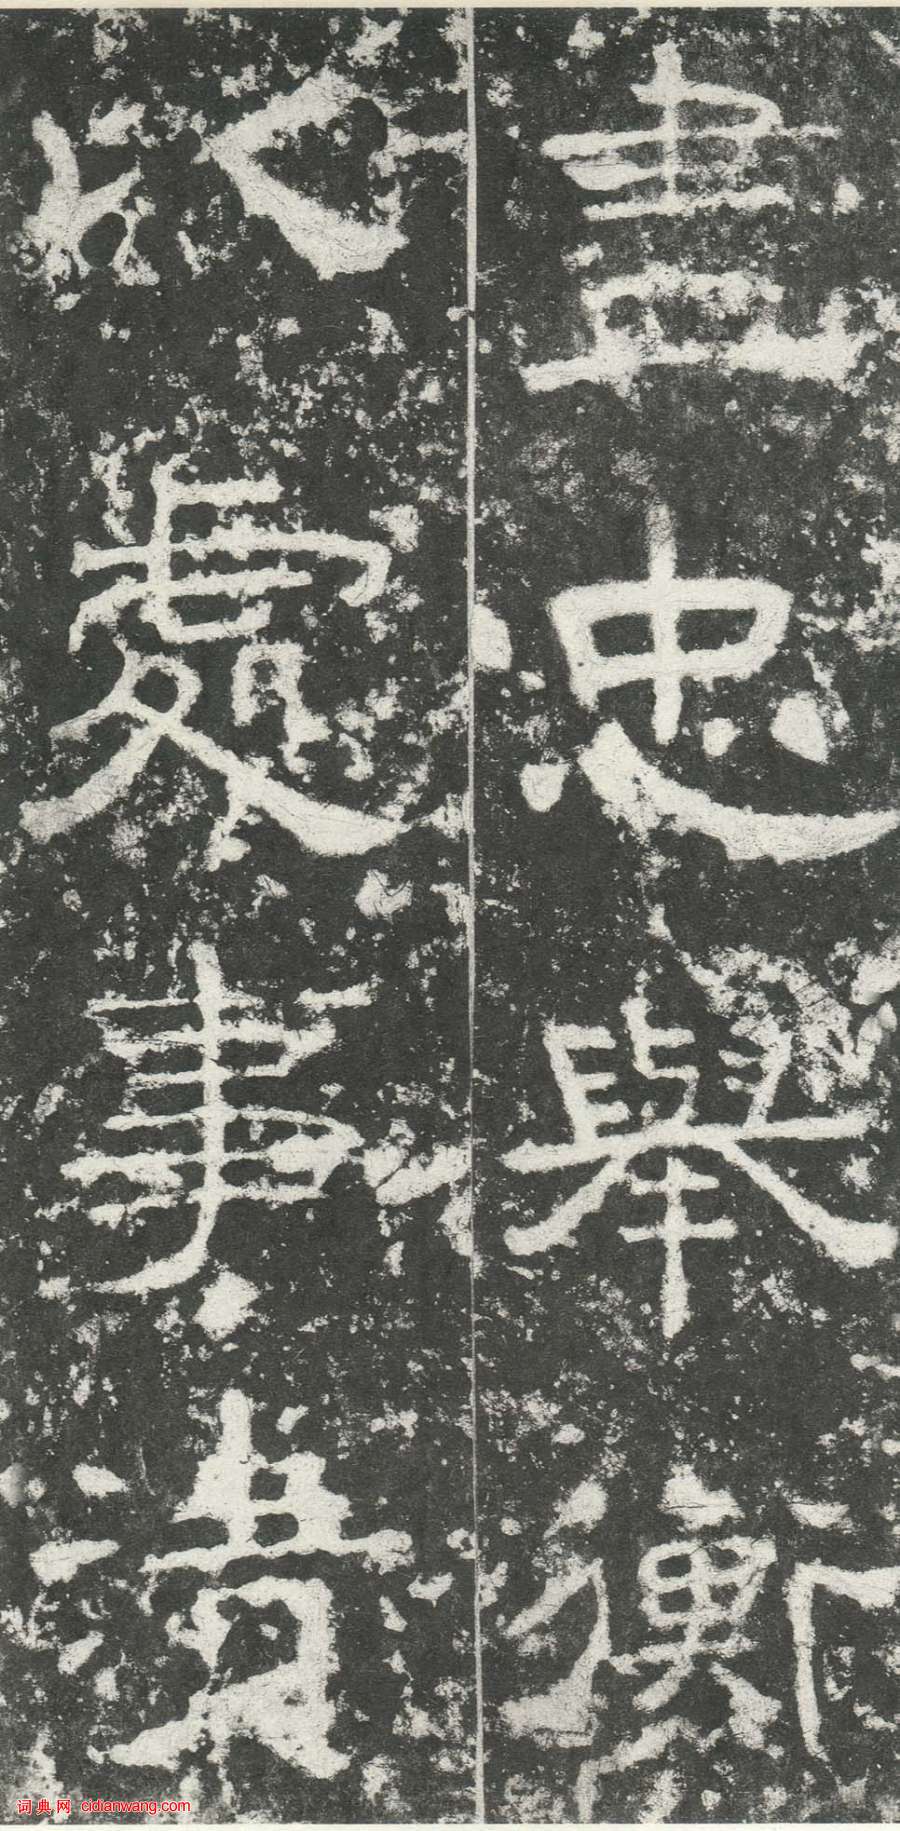 畫忠舉衡
以處事貴
词典网 cidianwang.com